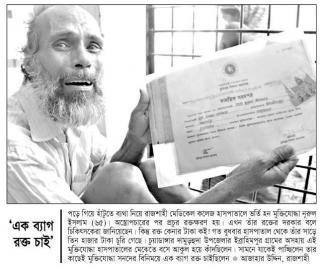 'এক ব্যাগ
রক্ত চাই'
পড়ে গিয়ে হাঁটুতে ব্যথা নিয়ে রাজশাহী মেডিকেল কলেজ হাসপাতালে ভর্তি হন মুক্তিযোদ্ধা নূরুল
ইসলাম (৬৫)। অস্ত্রোপচারের পর প্রচুর রক্তক্ষরণ হয়। এখন তাঁর রক্তের দরকার বলে
চিকিৎসকেরা জানিয়েছেন। কিন্তু রক্ত কেনার টাকা কই! গত বুধবার হাসপাতাল থেকে তাঁর সাড়ে
তিন হাজার টাকা চুরি গেছে। চুয়াডাঙ্গার দামুড়হুদা উপজেলার ইব্রাহিমপুর গ্রামের অসহায় এই
মুক্তিযোদ্ধা হাসপাতালের মেঝেতে বসে আকুল হয়ে কাঁদছিলেন। সামনে যাকেই পাচ্ছিলেন তার
কাছেই মুক্তিযোদ্ধা সনদের বিনিময়ে এক ব্যাগ রক্ত চাইছিলেন ● আজাহার উদ্দিন, রাজশাহী